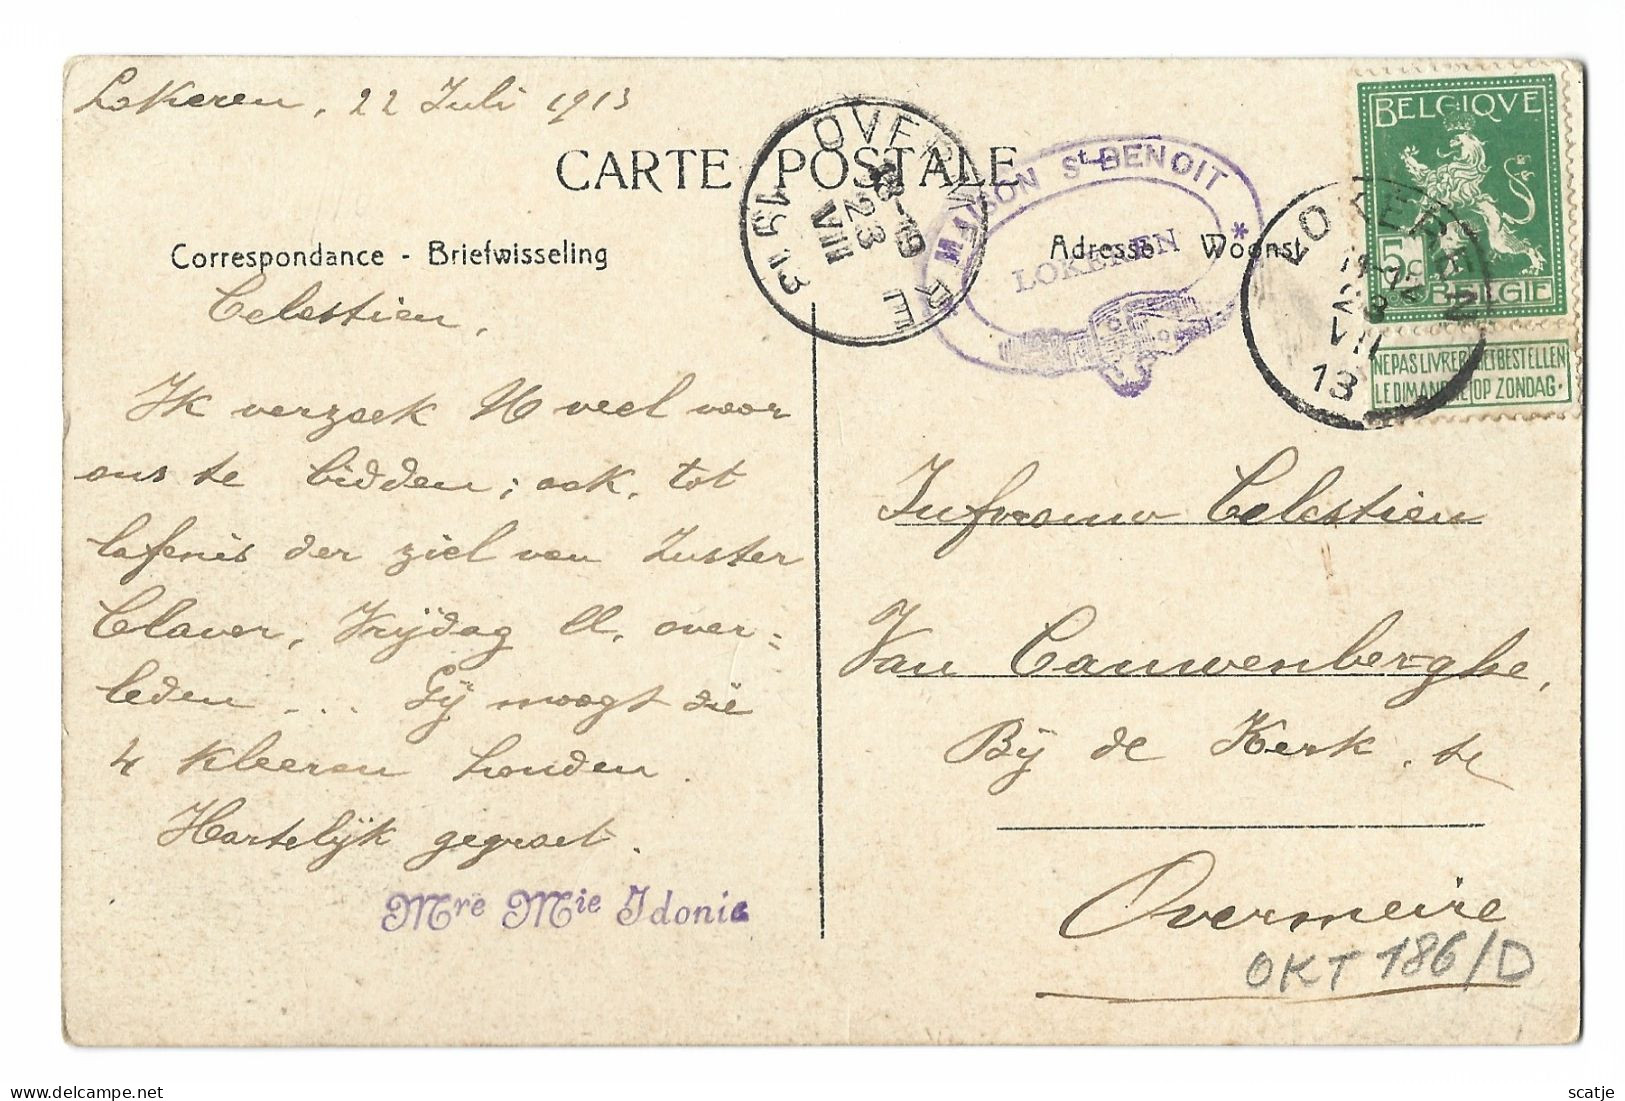 Lokeren, 22 Juli 1913
CARTE POSTALE
Correspondance - Briefwisseling
Adresse Woonst
OVERMEIRE
8-19
23
VII
1913
MAISON St BENOIT
LOKEREN
*
LOKEREN
11-12
23
VII
13
BELGIQVE
5c
BELGIË
NE PAS LIVRER NIET BESTELLEN
LE DIMANCHE OP ZONDAG.
Celestien,
Ik verzoek U veel voor
ons te bidden; ook, tot
lafenis der ziel van Zuster
Claver, Vrijdag ll. over=
leden ... Gij moogt die
4 kleeren houden.
Hartelijk gegroet.
Mre Mie Idonie
Jufvrouw Celestien
Van Cauwenberghe,
Bij de Kerk, te
Overmeire
OKT 186/D
scatje